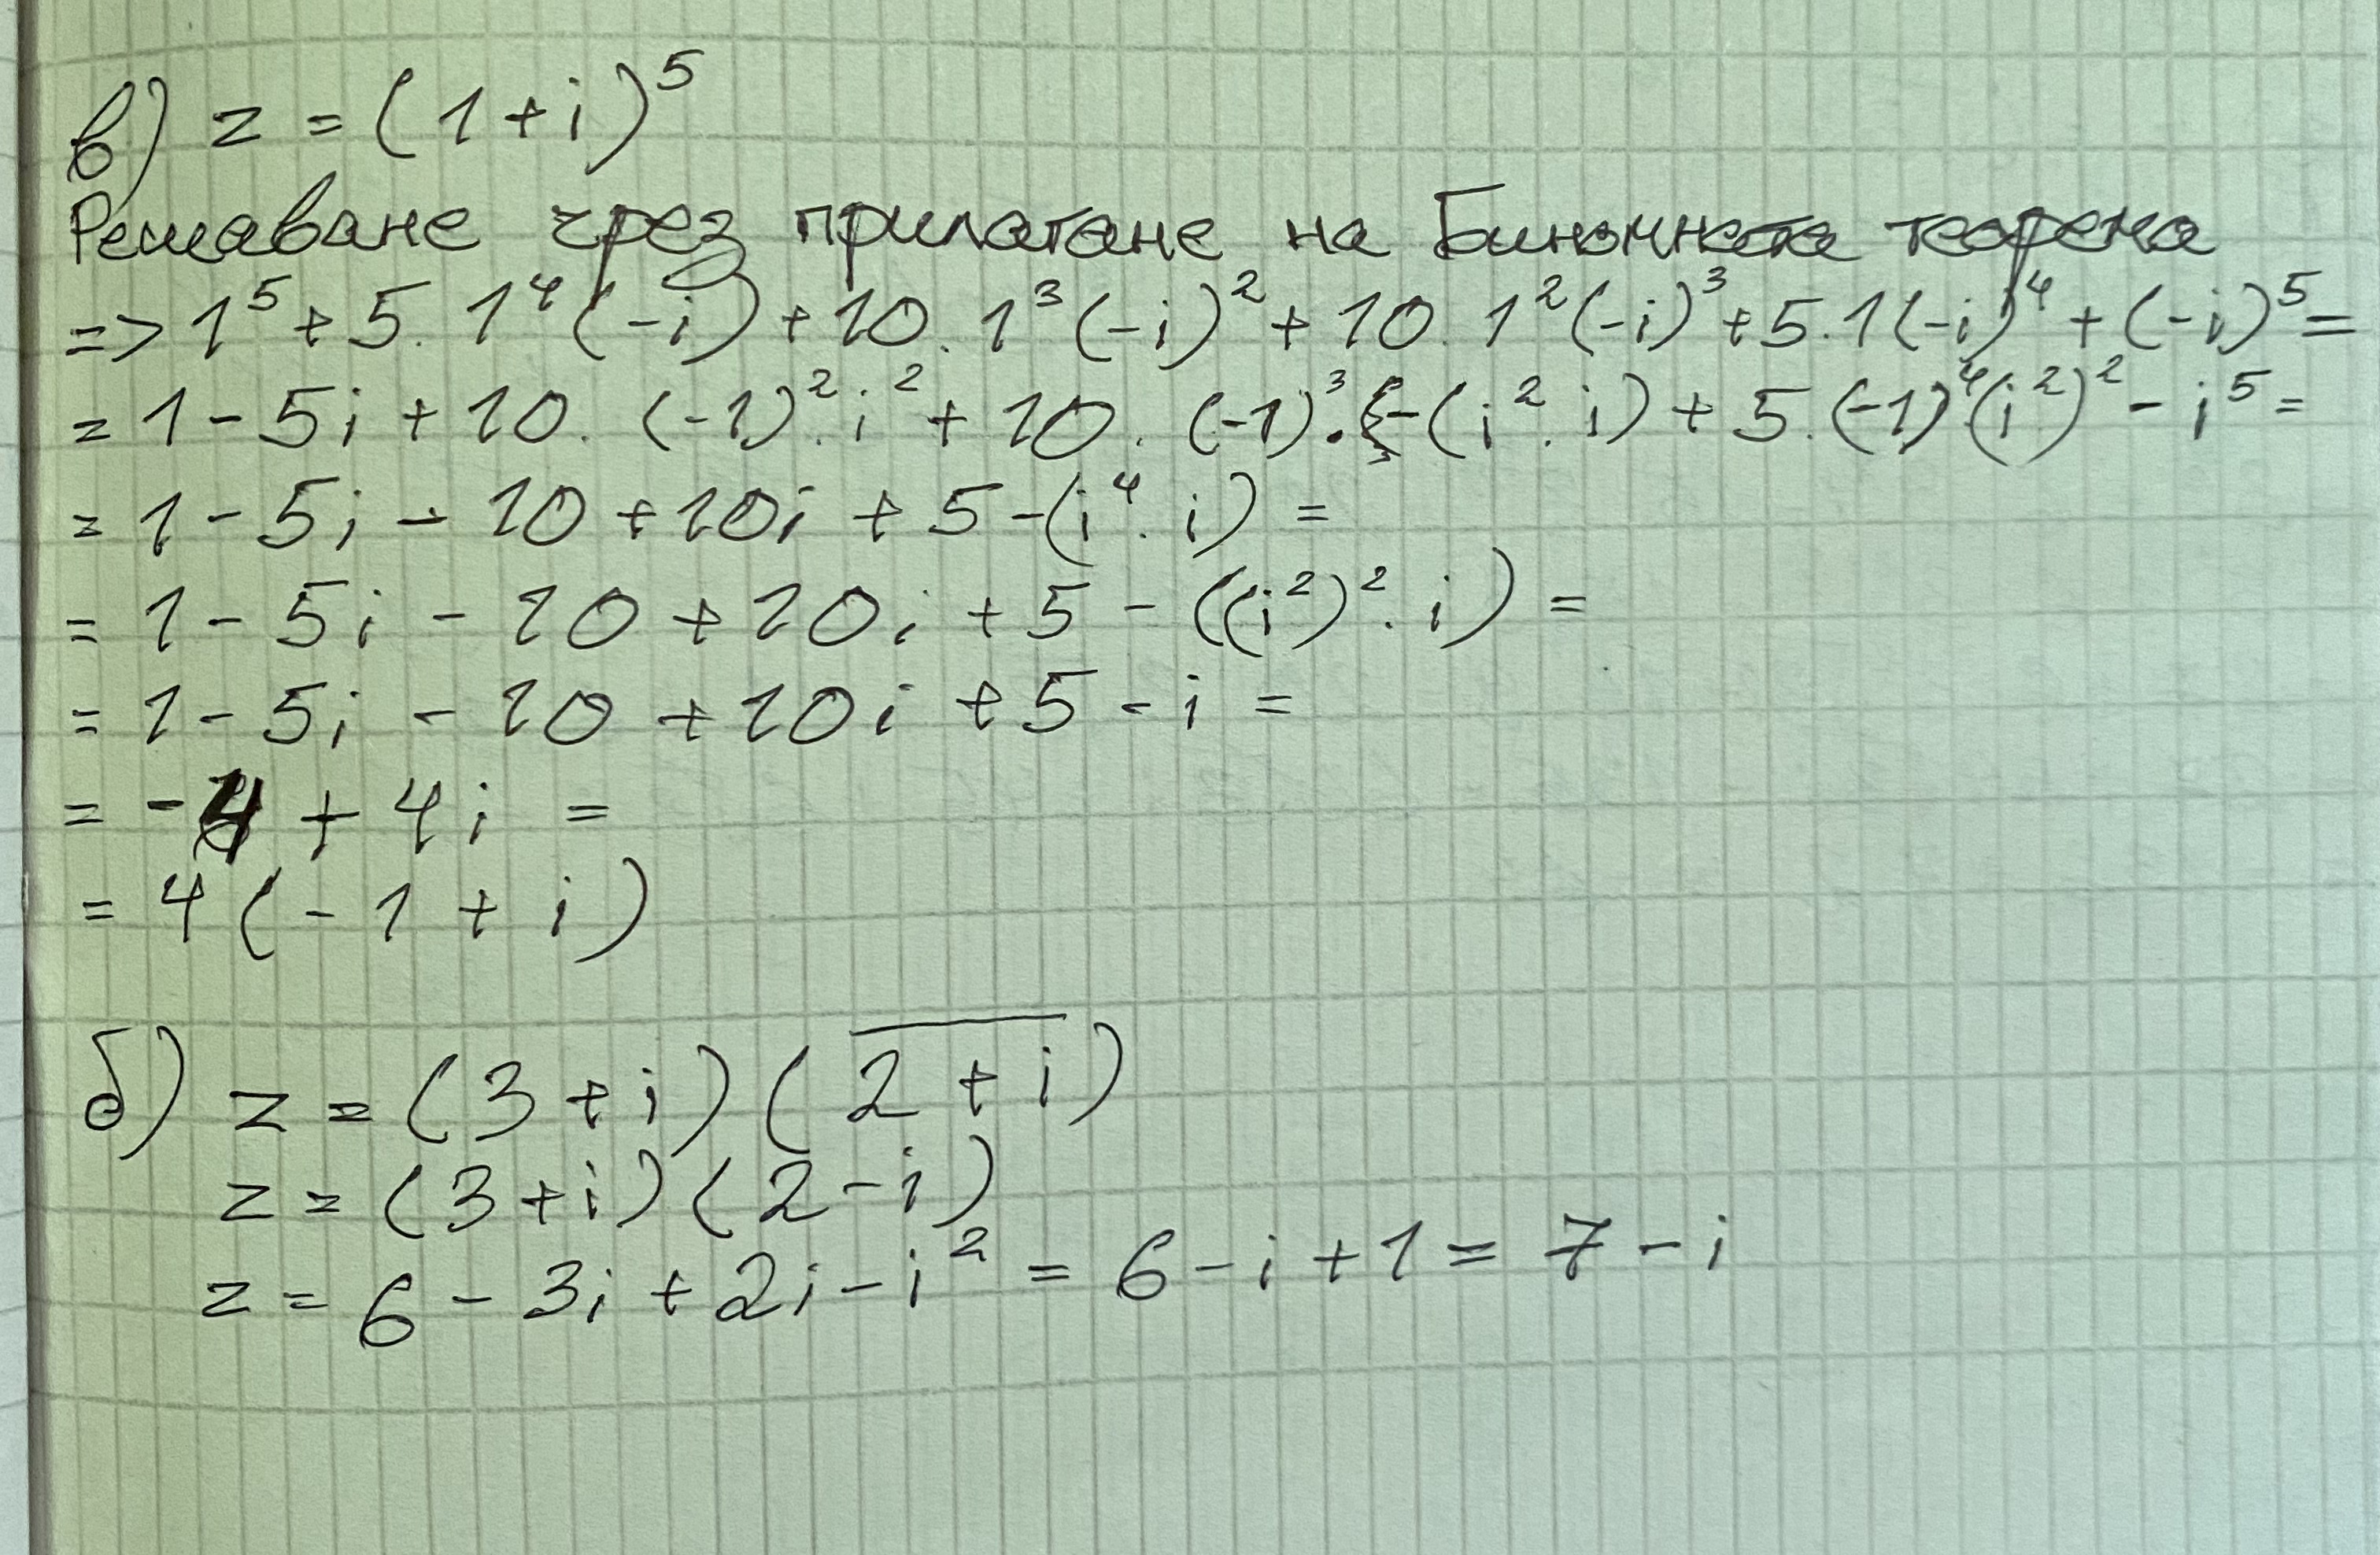 в) z = (1 + i)⁵
Решаване чрез прилагане на Биномната теорема
=> 1⁵ + 5 . 1⁴ (-i) + 10 . 1³ (-i)² + 10 . 1² (-i)³ + 5 . 1 (-i)⁴ + (-i)⁵ =
= 1 - 5i + 10 . (-1)² . i² + 10 . (-1)³ . - (i² . i) + 5 . (-1)⁴ (i²)² - i⁵ =
= 1 - 5i - 10 + 10i + 5 - (i⁴ . i) =
= 1 - 5i - 10 + 10i + 5 - ((i²)² . i) =
= 1 - 5i - 10 + 10i + 5 - i =
= -4 + 4i =
= 4 (-1 + i)
б) z = (3 + i) (\overline{2 + i})
z = (3 + i) (2 - i)
z = 6 - 3i + 2i - i² = 6 - i + 1 = 7 - i